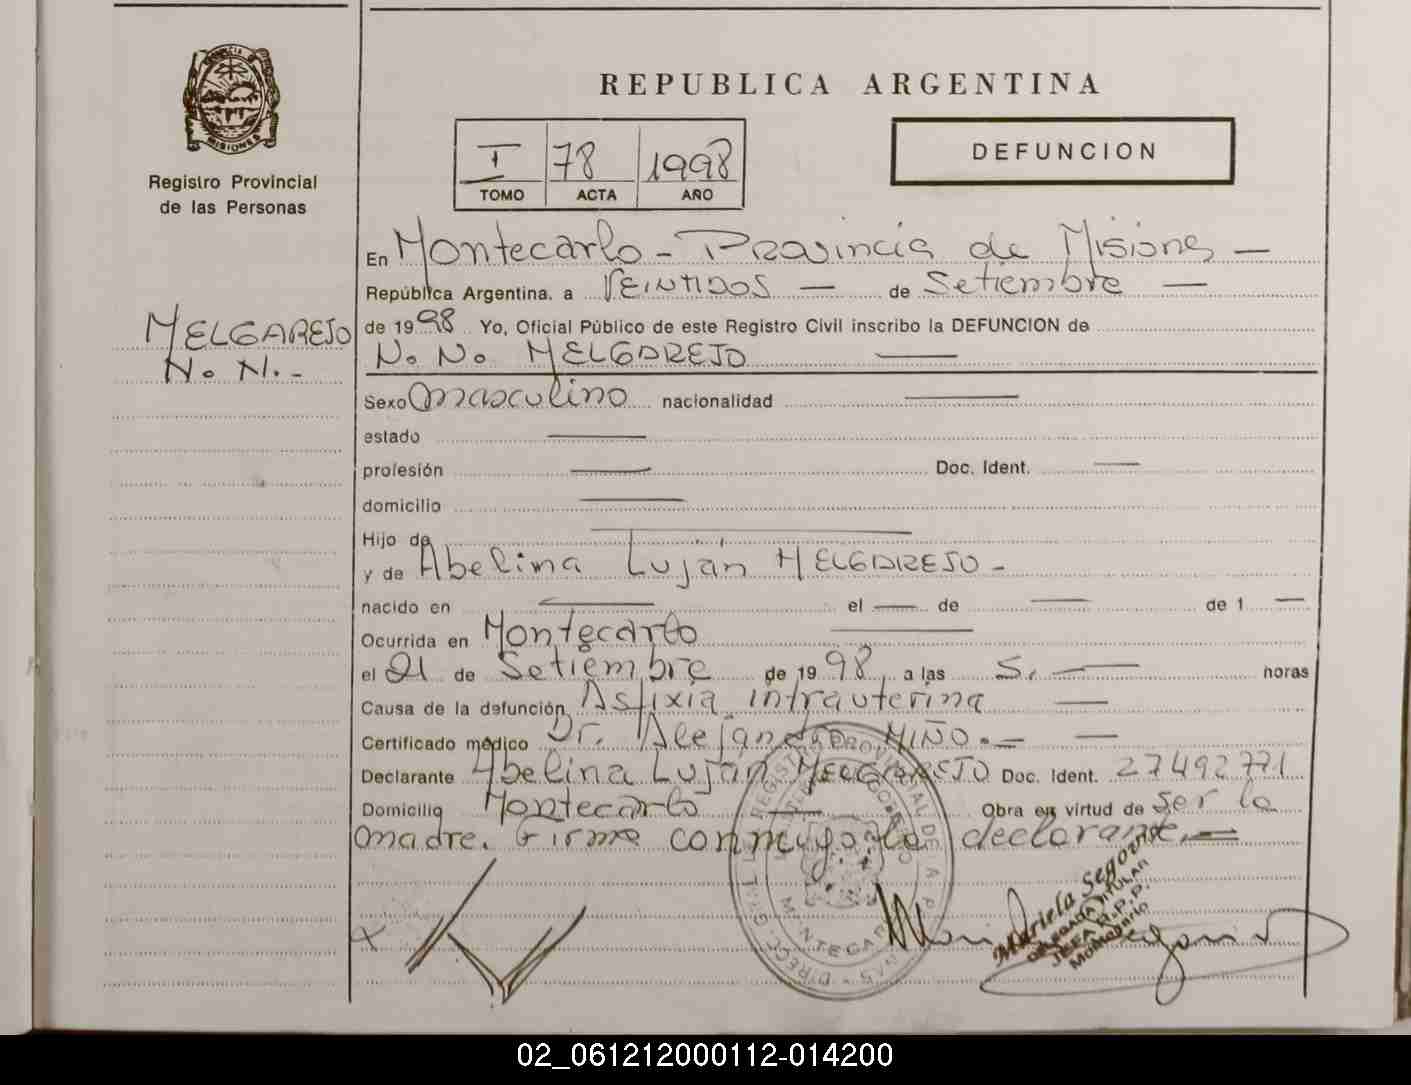 REPUBLICA ARGENTINA
PROVINCIA DE
MISIONES
Registro Provincial
de las Personas
I 78 1998
TOMO ACTA AÑO
DEFUNCION
MELGAREJO
N. N.-
En Montecarlo - Provincia de Misiones —
República Argentina, a VEINTIDOS — de Setiembre —
de 1998 Yo, Oficial Público de este Registro Civil inscribo la DEFUNCION de
N. N. MELGAREJO —
Sexo masculino nacionalidad —
estado —
profesión — Doc. Ident. —
domicilio —
Hijo de —
y de Abelina Luján MELGAREJO -
nacido en — el — de — de 1 —
Ocurrida en Montecarlo —
el 21 de Setiembre de 1998, a las 5. — horas
Causa de la defunción Asfixia intrauterina —
Certificado médico Dr. Alejandro MIÑO.- —
Declarante Abelina Luján MELGAREJO Doc. Ident. 27492771
Domicilio Montecarlo — Obra en virtud de ser la
madre. Firma conmigo la declarante. —
Mariela Segovia
DELEGADA TITULAR
JEFA R.P.P.
Montecarlo
02_061212000112-014200